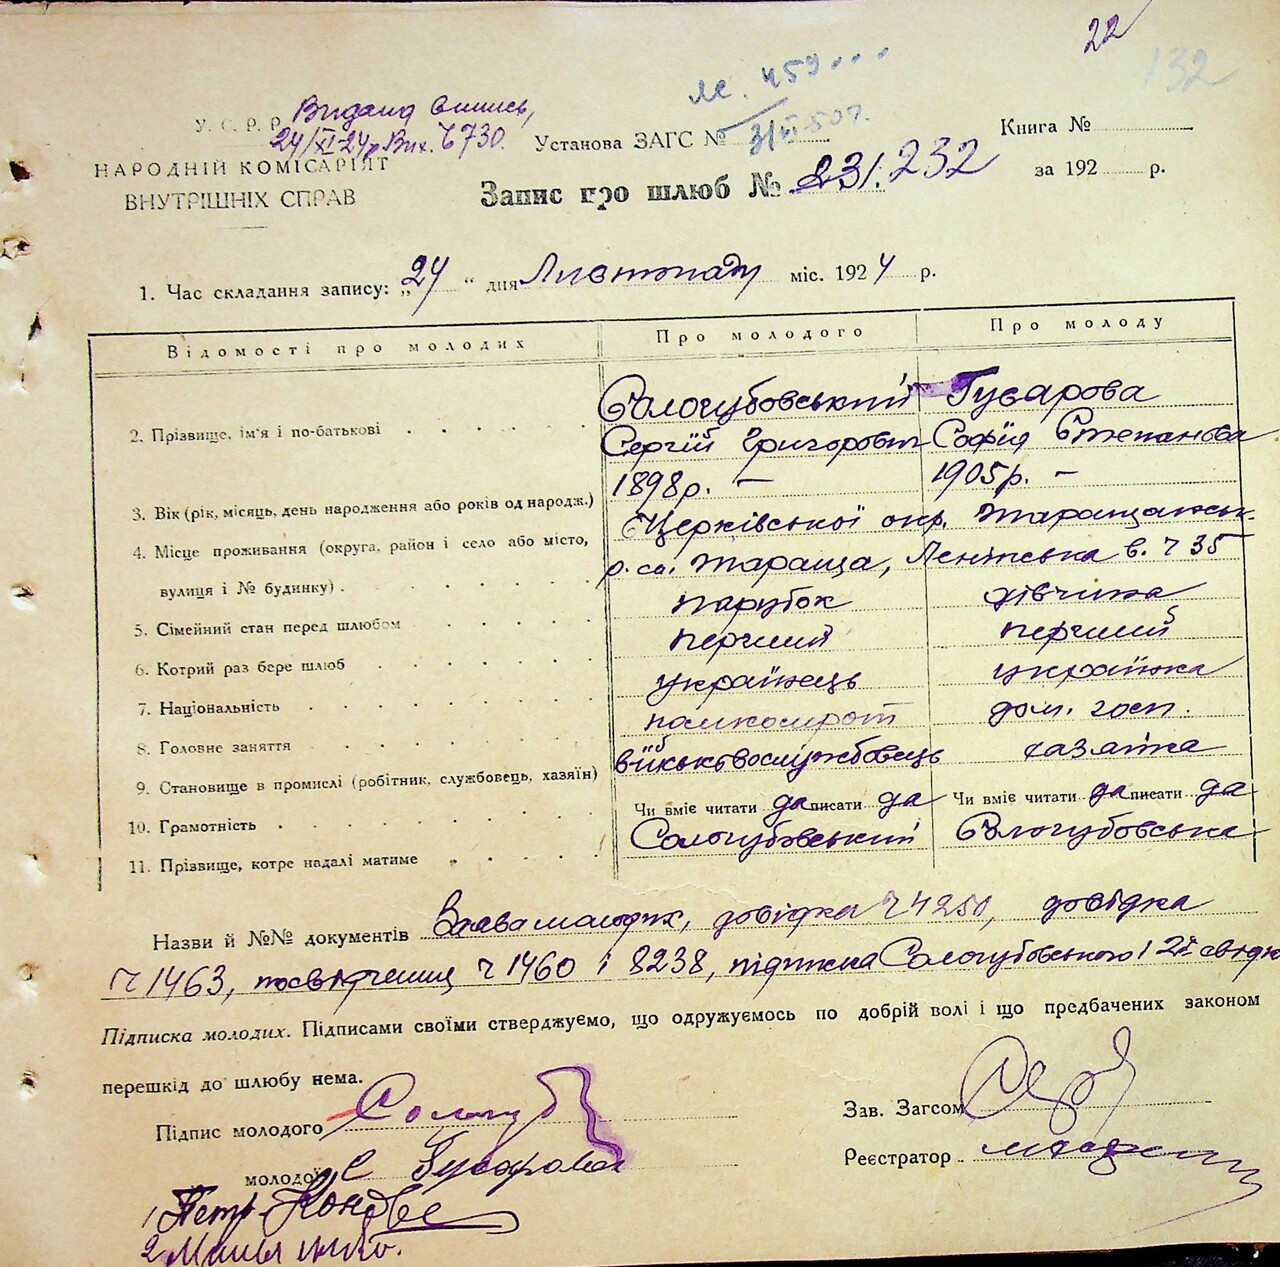 22
132
Видана виписъ,
24/XI 24р Вих. Ч730.
У. С. Р. Р.
НАРОДНІЙ КОМІСАРІЯТ
ВНУТРІШНІХ СПРАВ
Установа ЗАГС №
Книга №
за 192 р.
Запис про шлюб № 231.232
1. Час складання запису: „24“ дня Листопаду міс. 1924 р.
Відомості про молодих Про молодого Про молоду
2. Прізвище, ім'я і по-батькові Сологубовський Сергій Григорович Гусарова Софія Степанова
3. Вік (рік, місяць, день народження або років од народж.) 1898р. — 1905р. —
4. Місце проживання (округа, район і село або місто, Б Церківської окр. Таращанськ.
вулиця і № будинку) р. са. Тараща, Ленінська в. Ч 35
5. Сімейний стан перед шлюбом парубок дівчина
6. Котрий раз бере шлюб перший перший
7. Національність українець українка
8. Головне заняття дом. госп.
9. Становище в промислі (робітник, службовець, хазяїн) військовослужбовець хазяйка
10. Грамотність Чи вміє читати да писати да Чи вміє читати да писати да
11. Прізвище, котре надалі матиме Сологубовський Сологубовська
Назви й №№ документів Заява молодих, довідка Ч 4250, довідка
Ч 1463, посвідчення Ч 1460 і 8238, підписка Сологубовського і 2х свідк
Підписка молодих. Підписами своїми стверджуємо, що одружуємось по добрій волі і що предбачених законом
перешкід до шлюбу нема.
Підпис молодого Сологуб
Зав. Загсом
молодої С Гусарова
Реєстратор
1 Петр
2